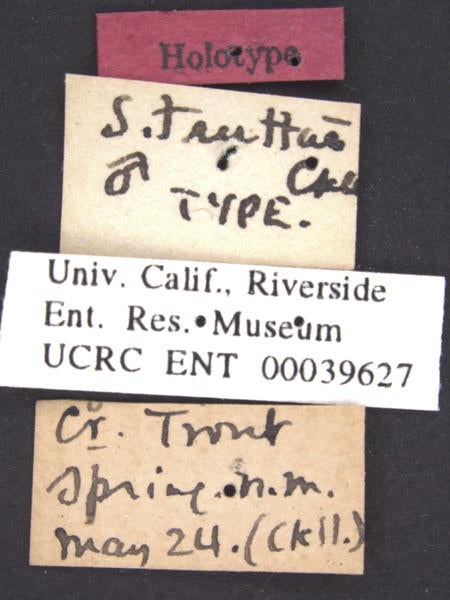 Holotype
S. truttae
♂ Ckll
TYPE.
Univ. Calif., Riverside
Ent. Res. Museum
UCRC ENT 00039627
Cr. Trout
Spring. n.m.
may 24. (Ckll.)